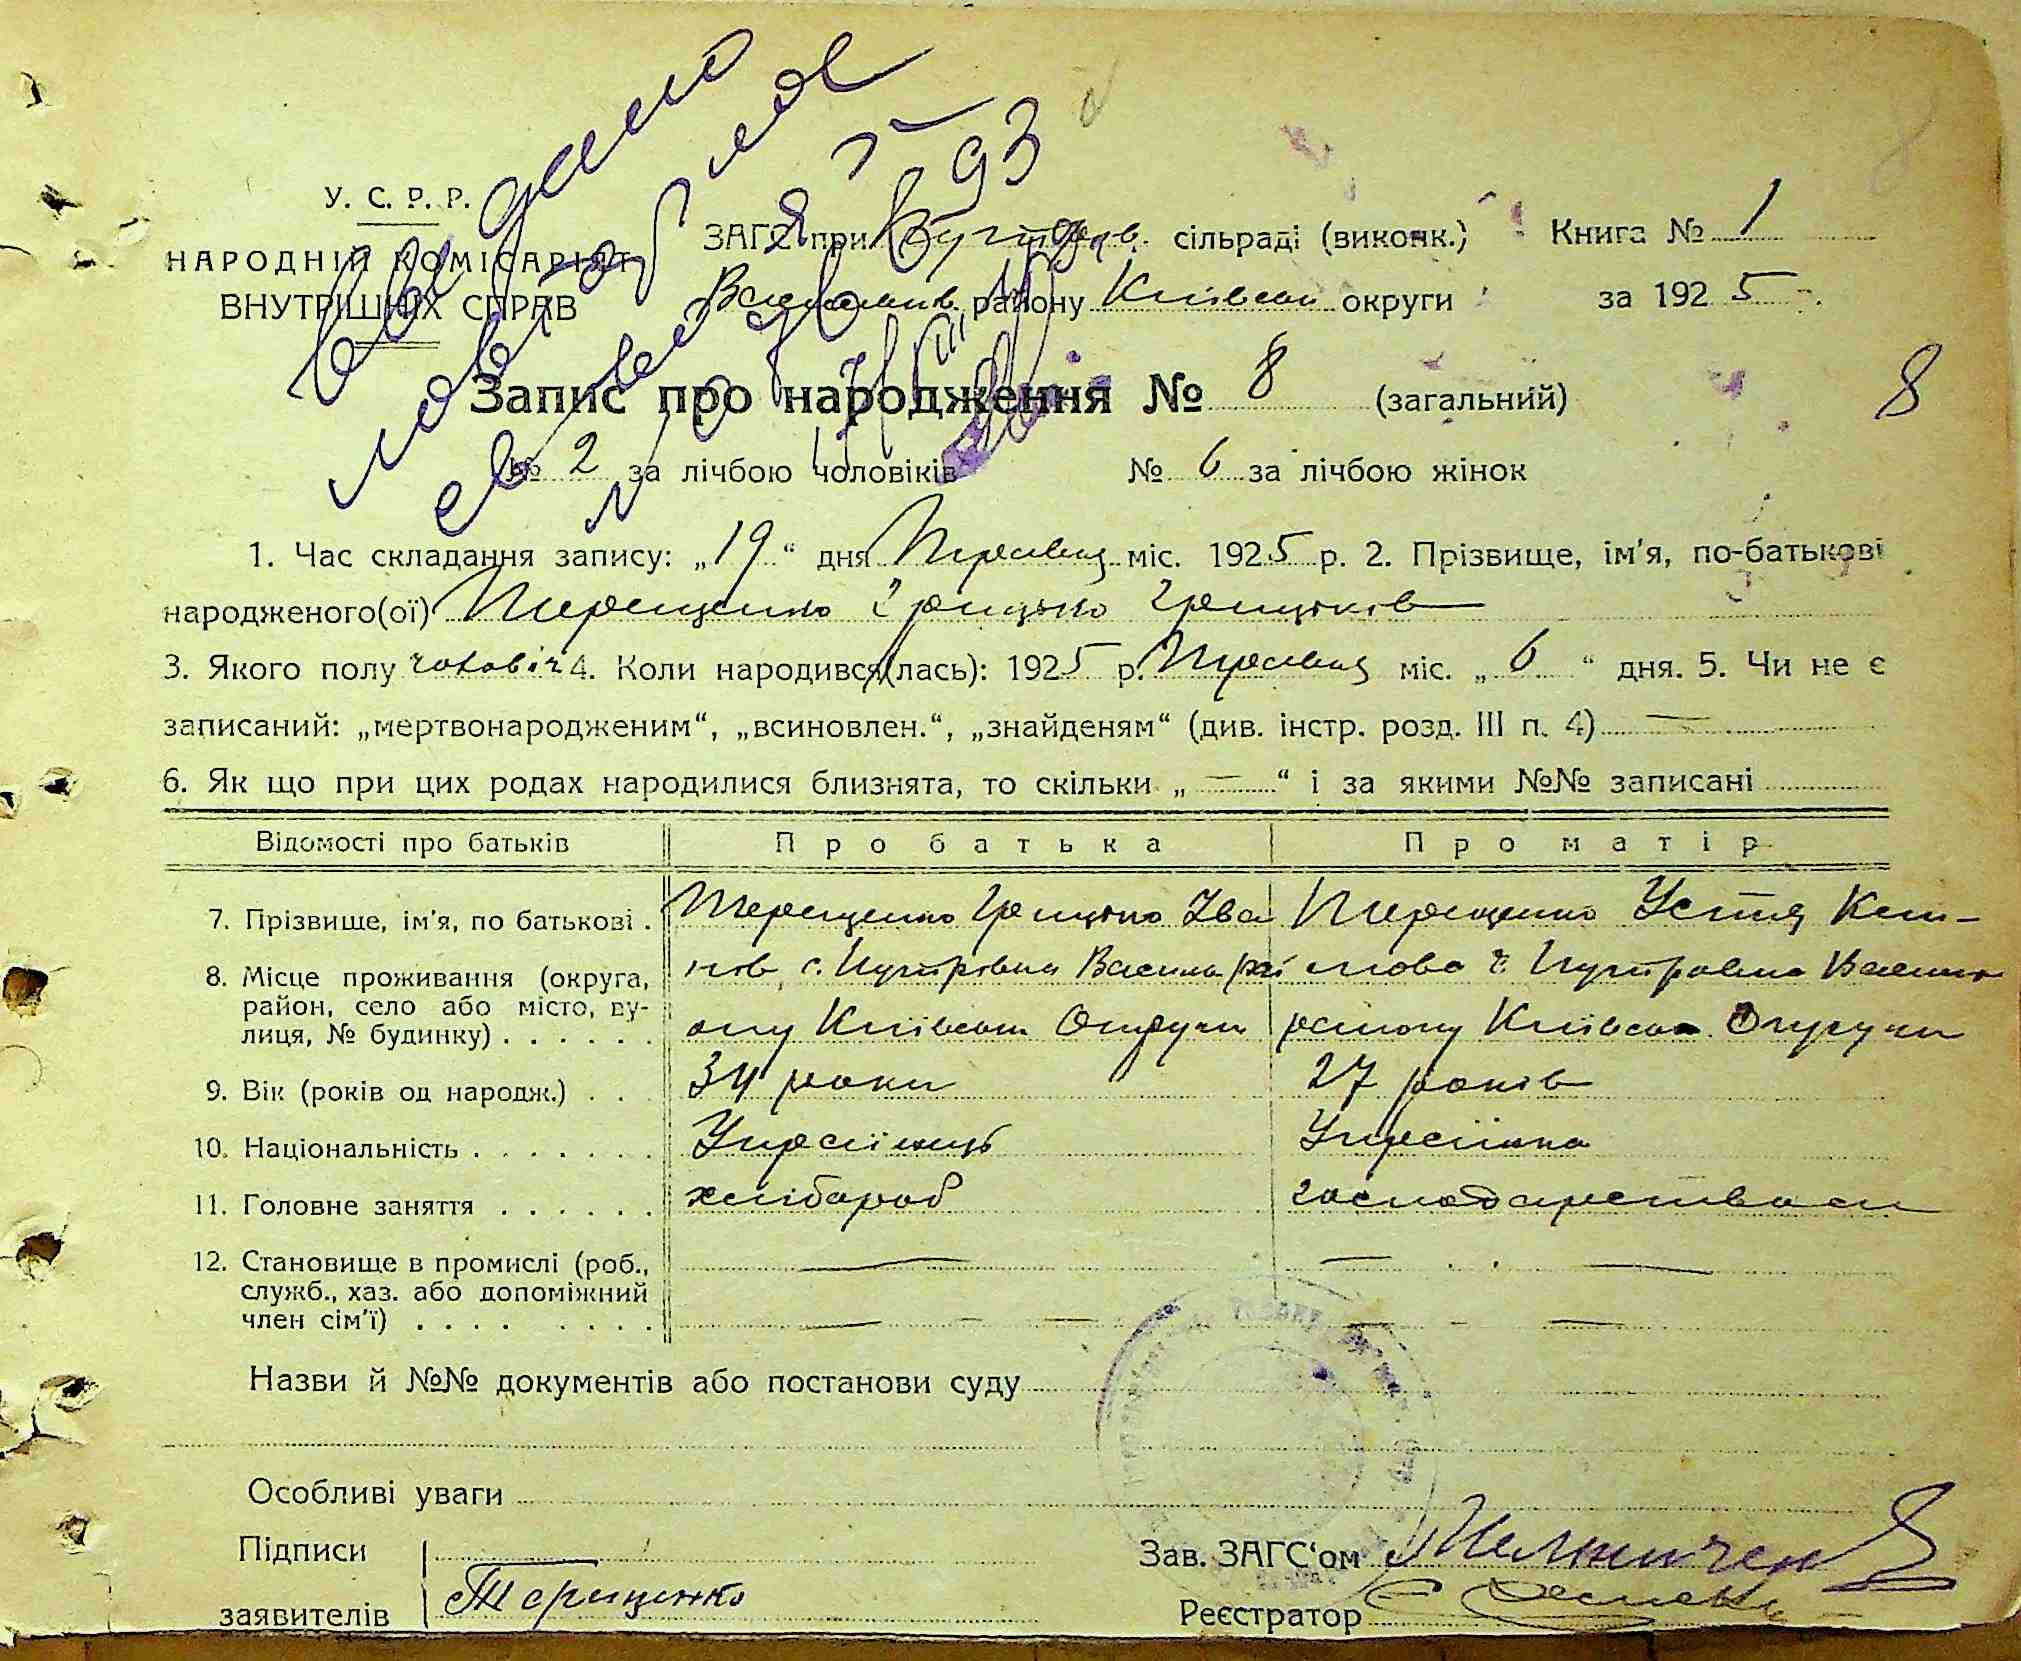 У. С. Р. Р.
НАРОДНІЙ КОМІСАРІЯТ
ВНУТРІШНІХ СПРАВ
видано
ЗАГС при сільраді (виконк.) Книга № 1
району Київськ округи за 1925 р.
Запис про народження № 8 (загальний)
8
№ 2 за лічбою чоловіків № 6 за лічбою жінок
1. Час складання запису: „19“ дня Травня міс. 1925 р. 2. Прізвище, ім'я, по-батькові
народженого(ої) Терещенко Грицько Грицьків
3. Якого полу чоловіч 4. Коли народився(лась): 1925 р. Травня міс. „6“ дня. 5. Чи не є
записаний: „мертвонародженим“, „всиновлен.“, „знайденям“ (див. інстр. розд. III п. 4) —
6. Як що при цих родах народилися близнята, то скільки „—“ і за якими №№ записані
Відомості про батьків Про батька Про матір
7. Прізвище, ім'я, по батькові . Терещенко Грицько Іва Терещенко Устя
8. Місце проживання (округа, нів с. Путрівка Василь рай с. Путрівка
район, село або місто, ву-
лиця, № будинку) . . . . . . ону Київськ Округи району Київськ Округи
9. Вік (років од народж.) . . . 34 роки 27 років
10. Національність . . . . . . . Українець Українка
11. Головне заняття . . . . . . хлібороб
12. Становище в промислі (роб., — —
служб., хаз. або допоміжний
член сім'ї) . . . . . . . . — —
Назви й №№ документів або постанови суду
Особливі уваги
Підписи Зав. ЗАГС'ом
заявителів Терищенко Реєстратор